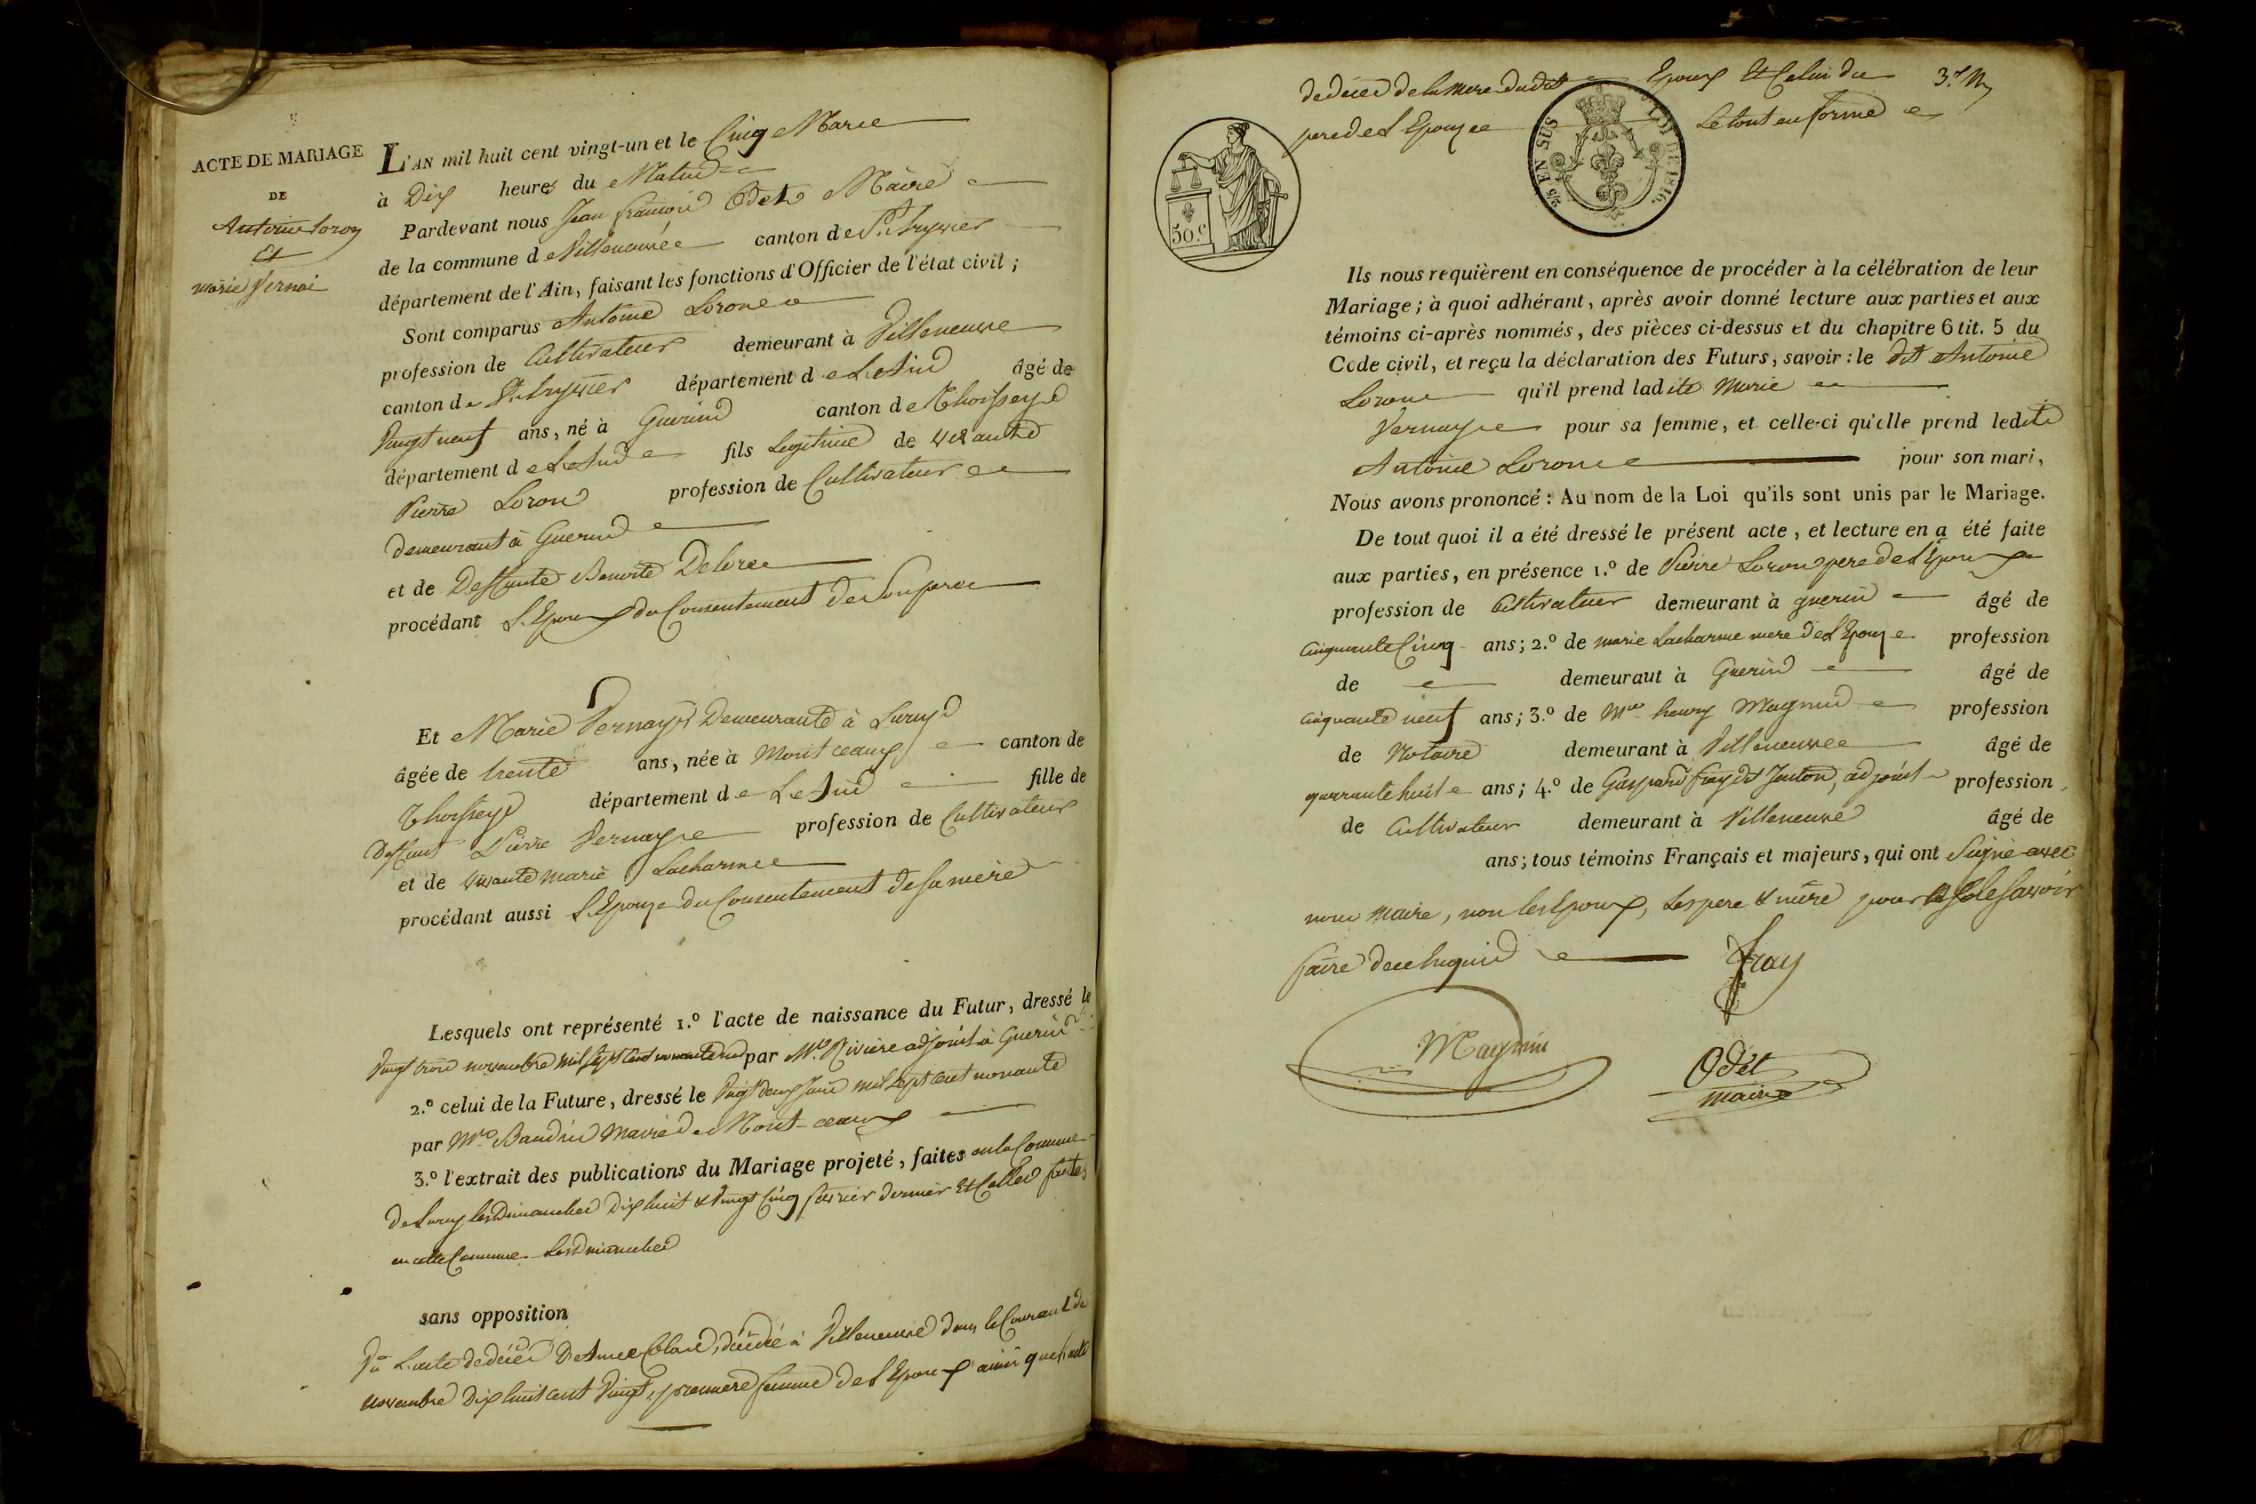 ACTE DE MARIAGE
DE
Antoine Loron
Et
marie Vernai
L'AN mil huit cent vingt-un et le Cinq Mars
à Dix heures du Matin
Pardevant nous Jean françois Odet Maire
de la commune de Villeneuve canton de St. trivier
département de l'Ain, faisant les fonctions d'Officier de l'état civil ;
Sont comparus Antoine Loron
profession de Cultivateur demeurant à Villeneuve
canton de St. trivier département de L'Ain âgé de
Vingt neuf ans, né à Guerins canton de Thoissey
département de L'Ain fils Legitime de vivant
Pierre Loron profession de Cultivateur
demeurant à Guerins
et de Deffunte Benoite Delorme
procédant L'Epoux du Consentement de Son pere
Et Marie Vernay Demeurante à Lurcy
âgée de trente ans, née à Montceaux canton de
Thoissey département de L'Ain fille de
Deffunt Pierre Vernay profession de Cultivateur
et de vivante marie Lacharme
procédant aussi L'Epouze du Consentement de Sa mere
Lesquels ont représenté 1.º l'acte de naissance du Futur, dressé le
Vingt trois novembre mil sept cent nonante un par Mre. Riviere adjoint à Guerins
2.º celui de la Future, dressé le Vingt deux Juin mil sept cent nonante
par Mre. Baudin Maire de Mont-ceaux
3.º l'extrait des publications du Mariage projeté, faites en la Commune
de Lurcy les Dimanches Dix huit & Vingt Cinq fevrier dernier Et Celles faites
en cette Commune Les Dimanches
sans opposition
Vu L'acte de décès De Anne Colard, décédé à Villeneuve dans le Courant de
novembre Dix huit cent Vingt, premiere femme de L'Epoux ainsi que l'acte
de décès de la mere du dit Epoux Et Celui du
pere de L'Epouzee Le tout en forme
3.e
50.c
25 EN SUS
LOI DE 1816.
Ils nous requièrent en conséquence de procéder à la célébration de leur
Mariage ; à quoi adhérant, après avoir donné lecture aux parties et aux
témoins ci-après nommés, des pièces ci-dessus et du chapitre 6 tit. 5 du
Code civil, et reçu la déclaration des Futurs, savoir : le dit Antoine
Loron qu'il prend ladite Marie
Vernay pour sa femme, et celle-ci qu'elle prend ledit
Antoine Loron pour son mari,
Nous avons prononcé : Au nom de la Loi qu'ils sont unis par le Mariage.
De tout quoi il a été dressé le présent acte, et lecture en a été faite
aux parties, en présence 1.º de Pierre Loron pere de L'Epoux
profession de Cultivateur demeurant à guerins âgé de
cinquante Cinq ans ; 2.º de marie Lacharme mere de L'Epouze profession
de demeuraut à Guerins âgé de
cinquante neuf ans ; 3.º de Mre. henry Magnin profession
de Notaire demeurant à Villeneuve âgé de
quarante huit ans ; 4.º de Gaspard fray dit Jonton, adjoint profession
de Cultivateur demeurant à Villeneuve âgé de
ans ; tous témoins Français et majeurs, qui ont Signé avec
nous maire, non les Epoux, Les pere & mere pour ne le Savoir
faire de ce Requis
fray
Magnin
Odet
maire